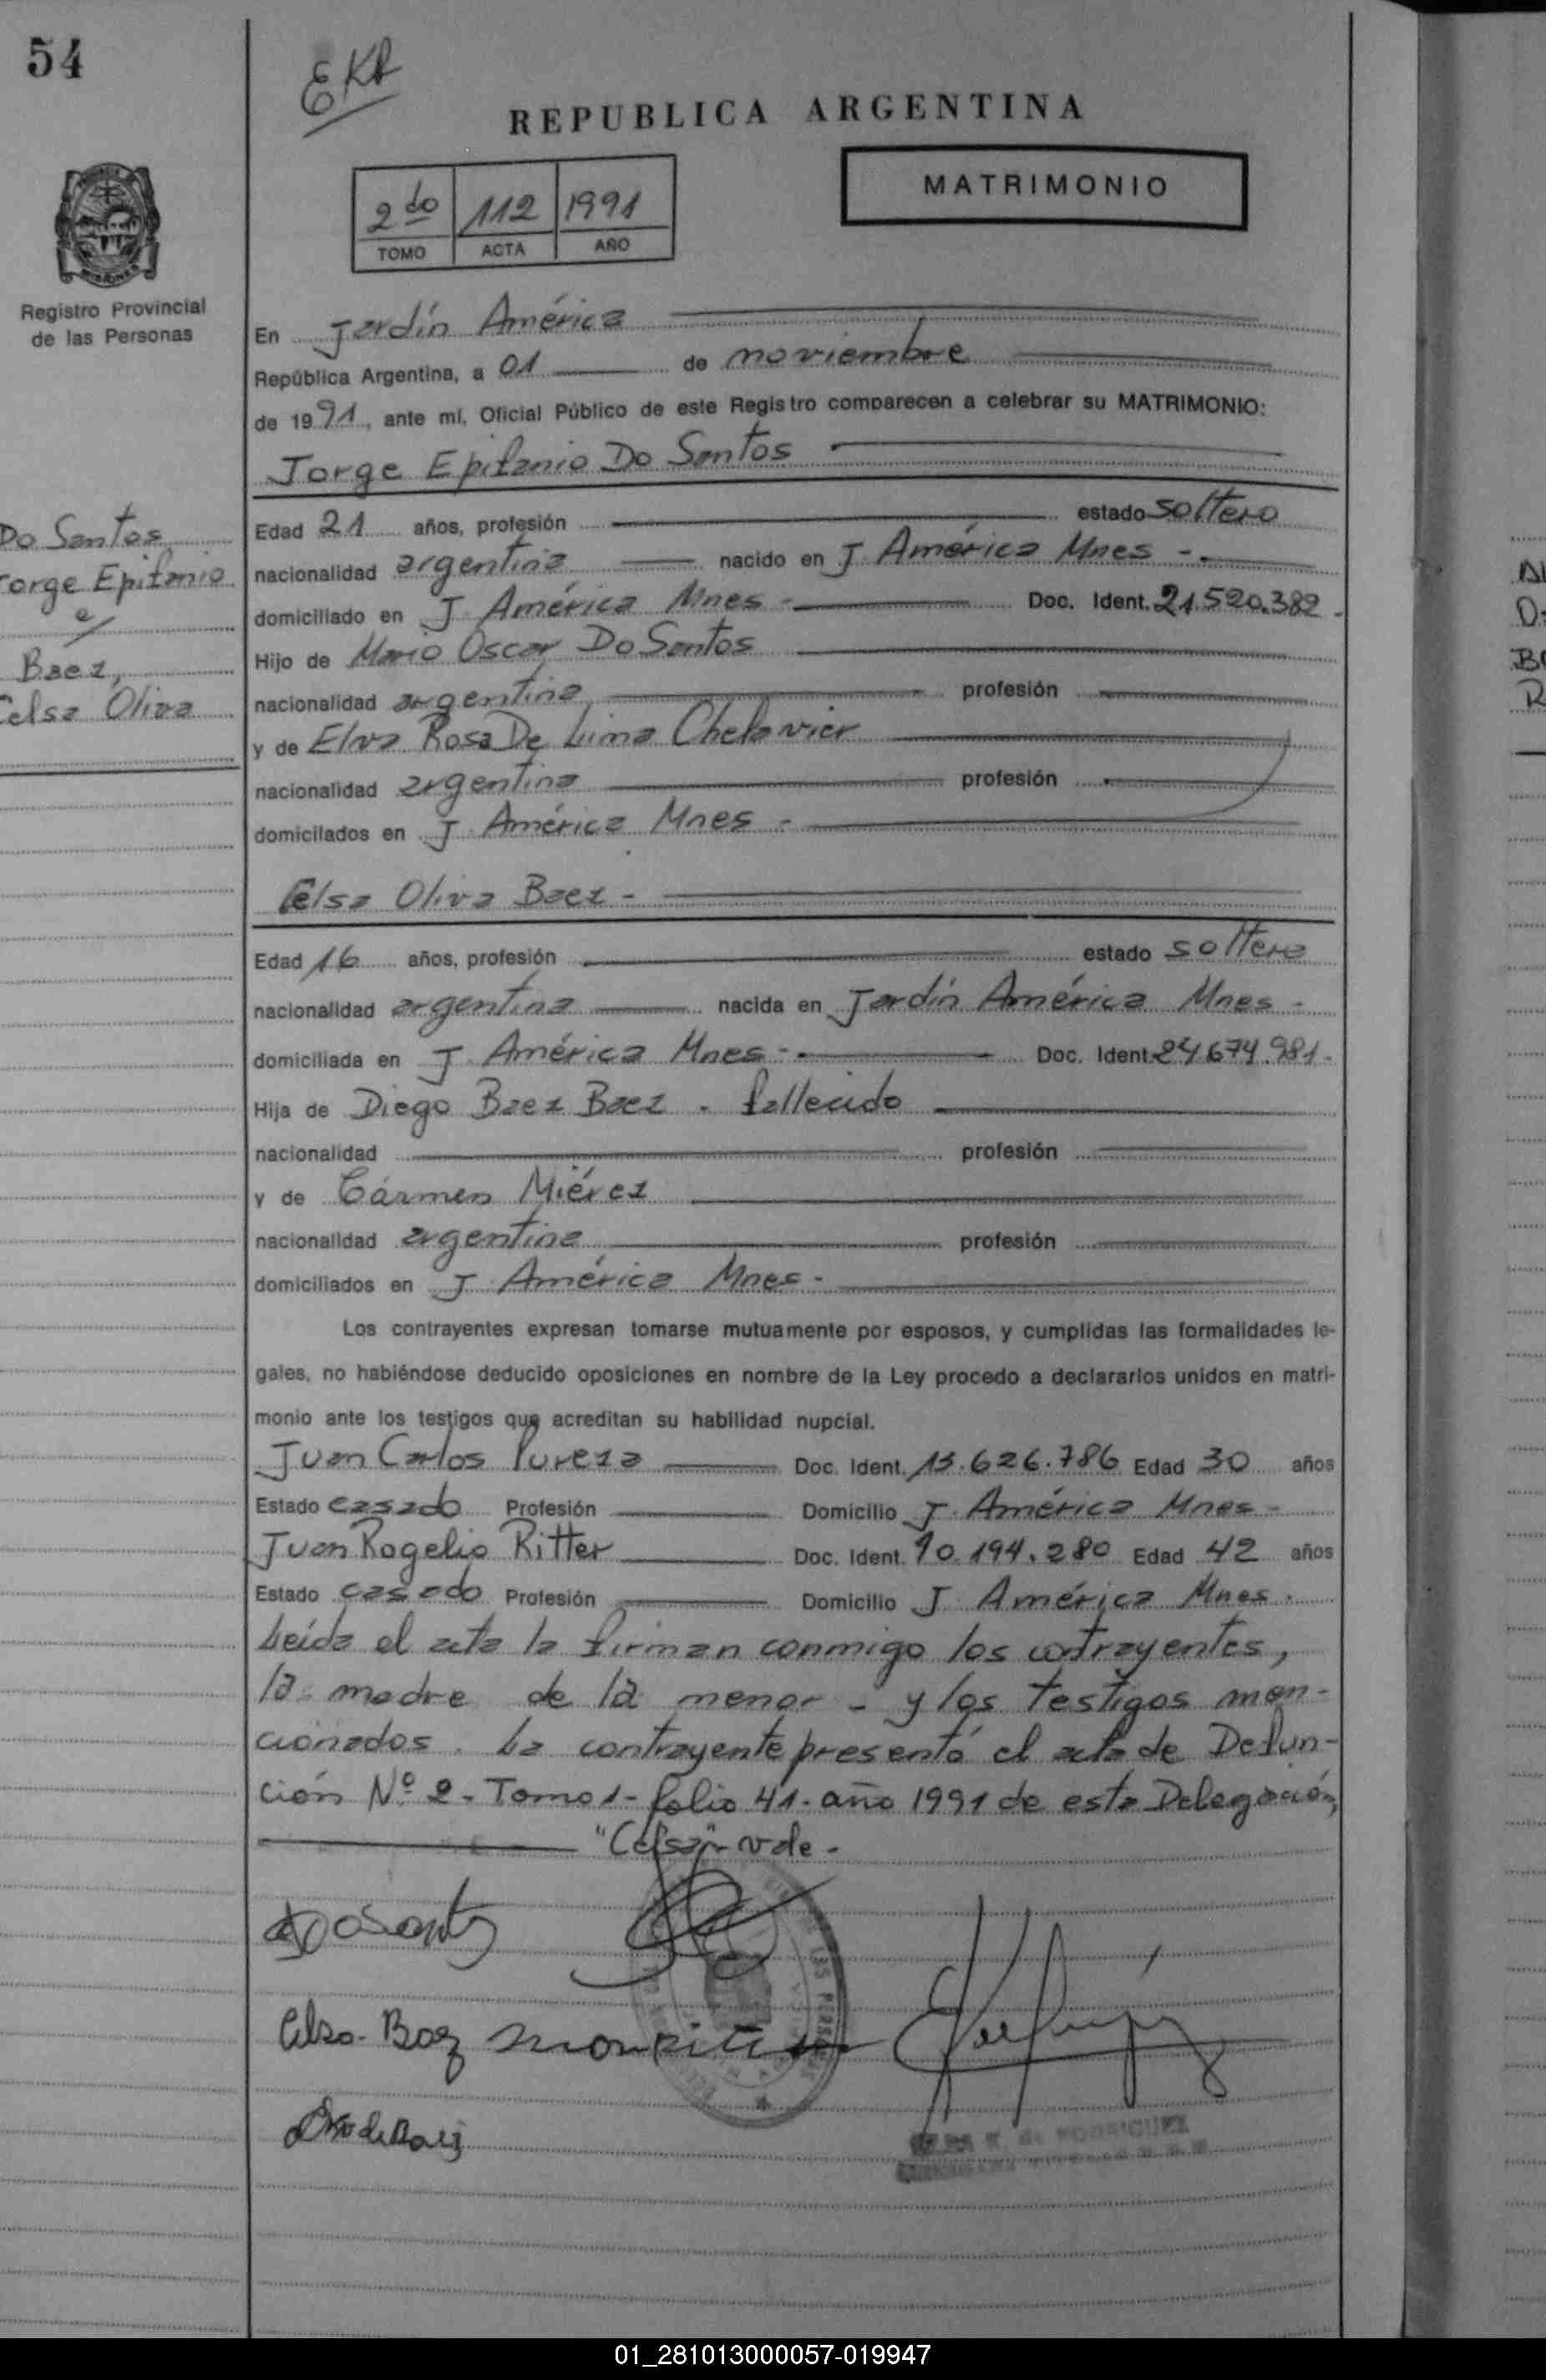 54
EKA
REPUBLICA ARGENTINA
MATRIMONIO
2do 112 1991
TOMO ACTA AÑO
Registro Provincial
de las Personas
En Jardín América
República Argentina, a 01 de noviembre
de 1991, ante mí, Oficial Público de este Registro comparecen a celebrar su MATRIMONIO:
Jorge Epifanio Do Santos
Do Santos
Jorge Epifanio
e/
Baez,
Celsa Oliva
Edad 21 años, profesión estado soltero
nacionalidad argentina nacido en J. América Mnes -
domiciliado en J. América Mnes - Doc. Ident. 21.520.382.
Hijo de Mario Oscar Do Santos
nacionalidad argentina profesión
y de Elva Rosa De Lima Chelavier
nacionalidad argentina profesión
domicilados en J. América Mnes -
Celsa Oliva Baez -
Edad 16 años, profesión estado soltera
nacionalidad argentina nacida en Jardín América Mnes -
domiciliada en J. América Mnes - Doc. Ident. 24.674.981.
Hija de Diego Baez Baez - fallecido
nacionalidad profesión
y de Cármen Miérez
nacionalidad argentina profesión
domiciliados en J. América Mnes -
Los contrayentes expresan tomarse mutuamente por esposos, y cumplidas las formalidades le-
gales, no habiéndose deducido oposiciones en nombre de la Ley procedo a declararlos unidos en matri-
monio ante los testigos que acreditan su habilidad nupcial.
Juan Carlos Pureza Doc. Ident. 15.626.786 Edad 30 años
Estado casado Profesión Domicilio J. América Mnes -
Juan Rogelio Ritter Doc. Ident. 10.194.280 Edad 42 años
Estado casado Profesión Domicilio J. América Mnes.
Leída el acta la firman conmigo los contrayentes,
la madre de la menor - y los testigos men-
cionados. La contrayente presentó el acta de Defun-
ción Nº 2 - Tomo 1 - folio 41 - año 1991 de esta Delegación,
"Celsa" - vale -
DoSantos
Celsa - Baez
RODRIGUEZ
01_281013000057-019947